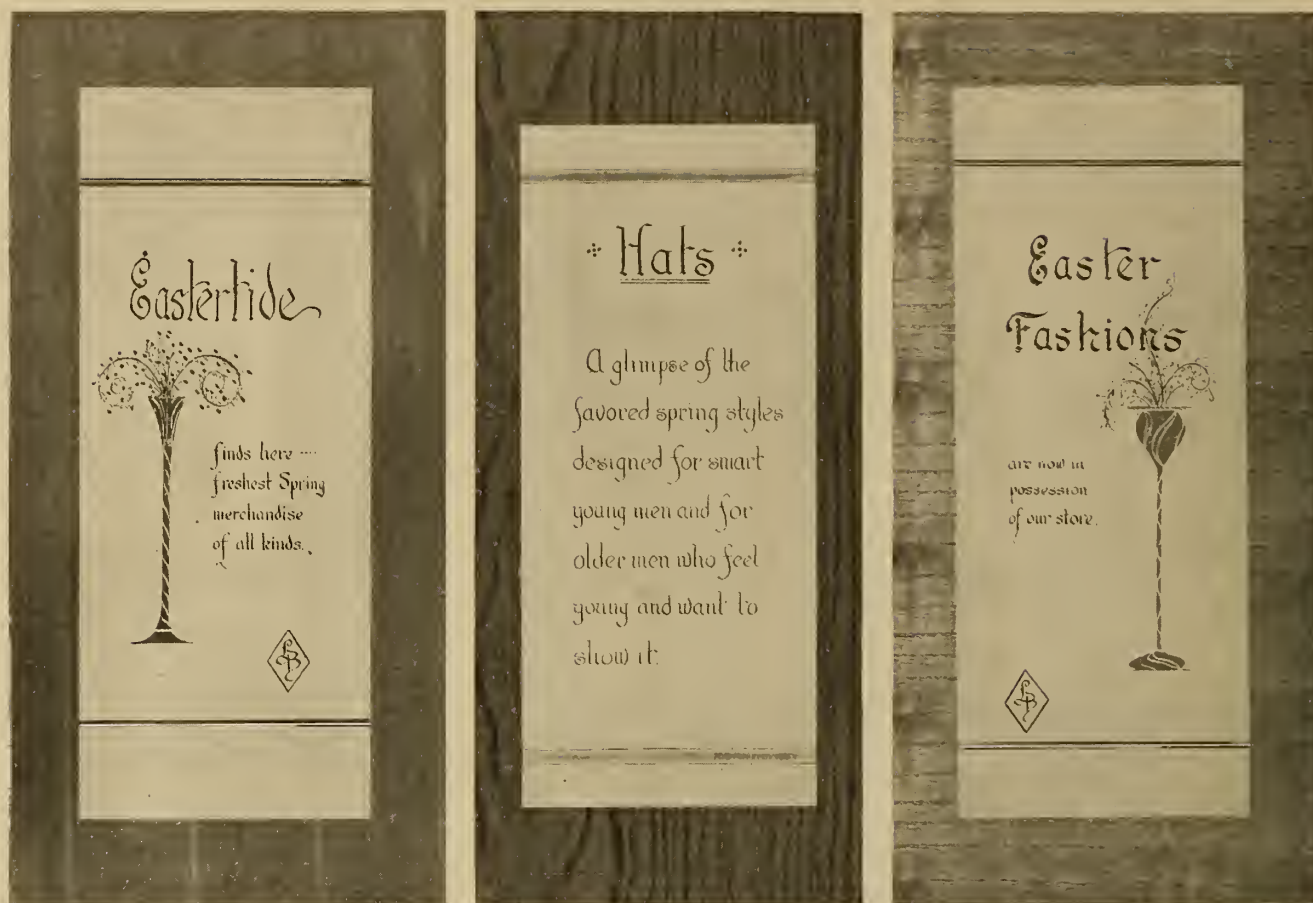 Eastertide
finds here ....
freshest Spring
merchandise
of all kinds.
LB
Hats
A glimpse of the
favored spring styles
designed for smart
young men and for
older men who feel
young and want to
show it.
Easter
Fashions
are now in
possession
of our store.
LB